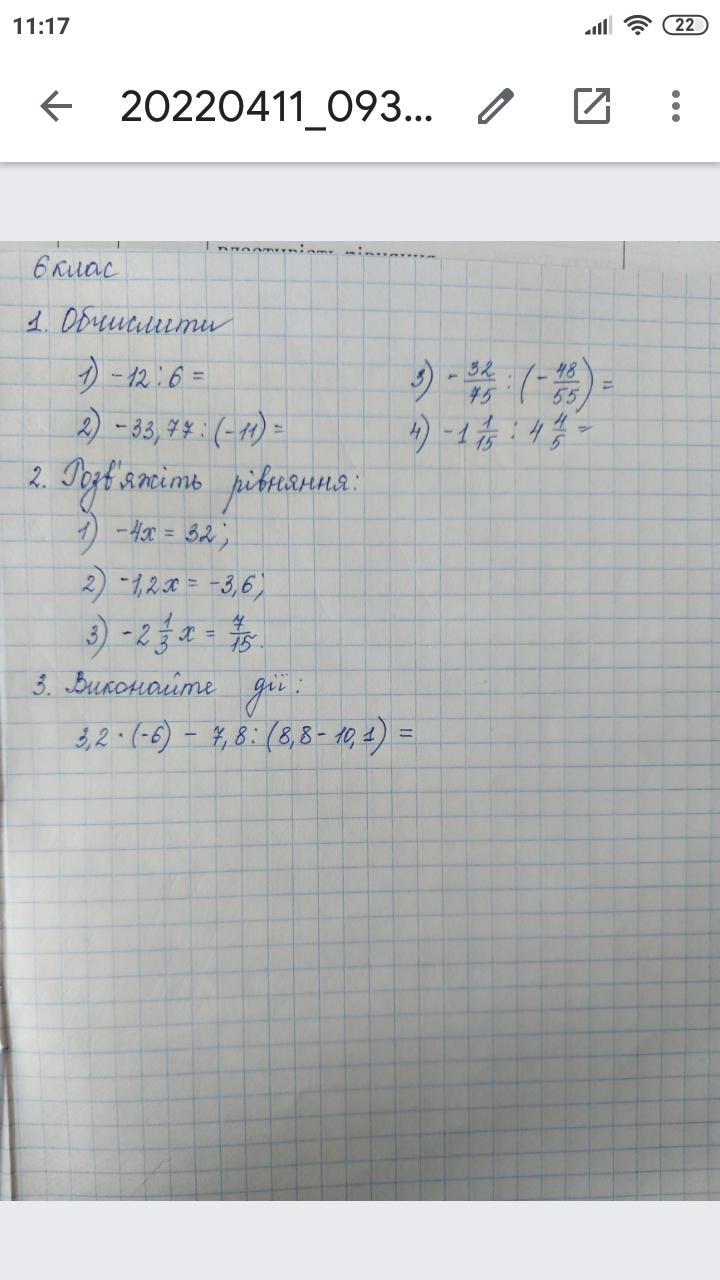 11:17
22
20220411_093...
властивість рівняння
6 клас
1. Обчислити
1) -12 : 6 =
3) - 32/75 : (- 48/55) =
2) -33,77 : (-11) =
4) -1 1/15 : 4 4/5 =
2. Розв'яжіть рівняння:
1) -4x = 32;
2) -1,2x = -3,6;
3) -2 1/3 x = 7/15.
3. Виконайте дії:
3,2 · (-6) - 7,8 : (8,8 - 10,1) =